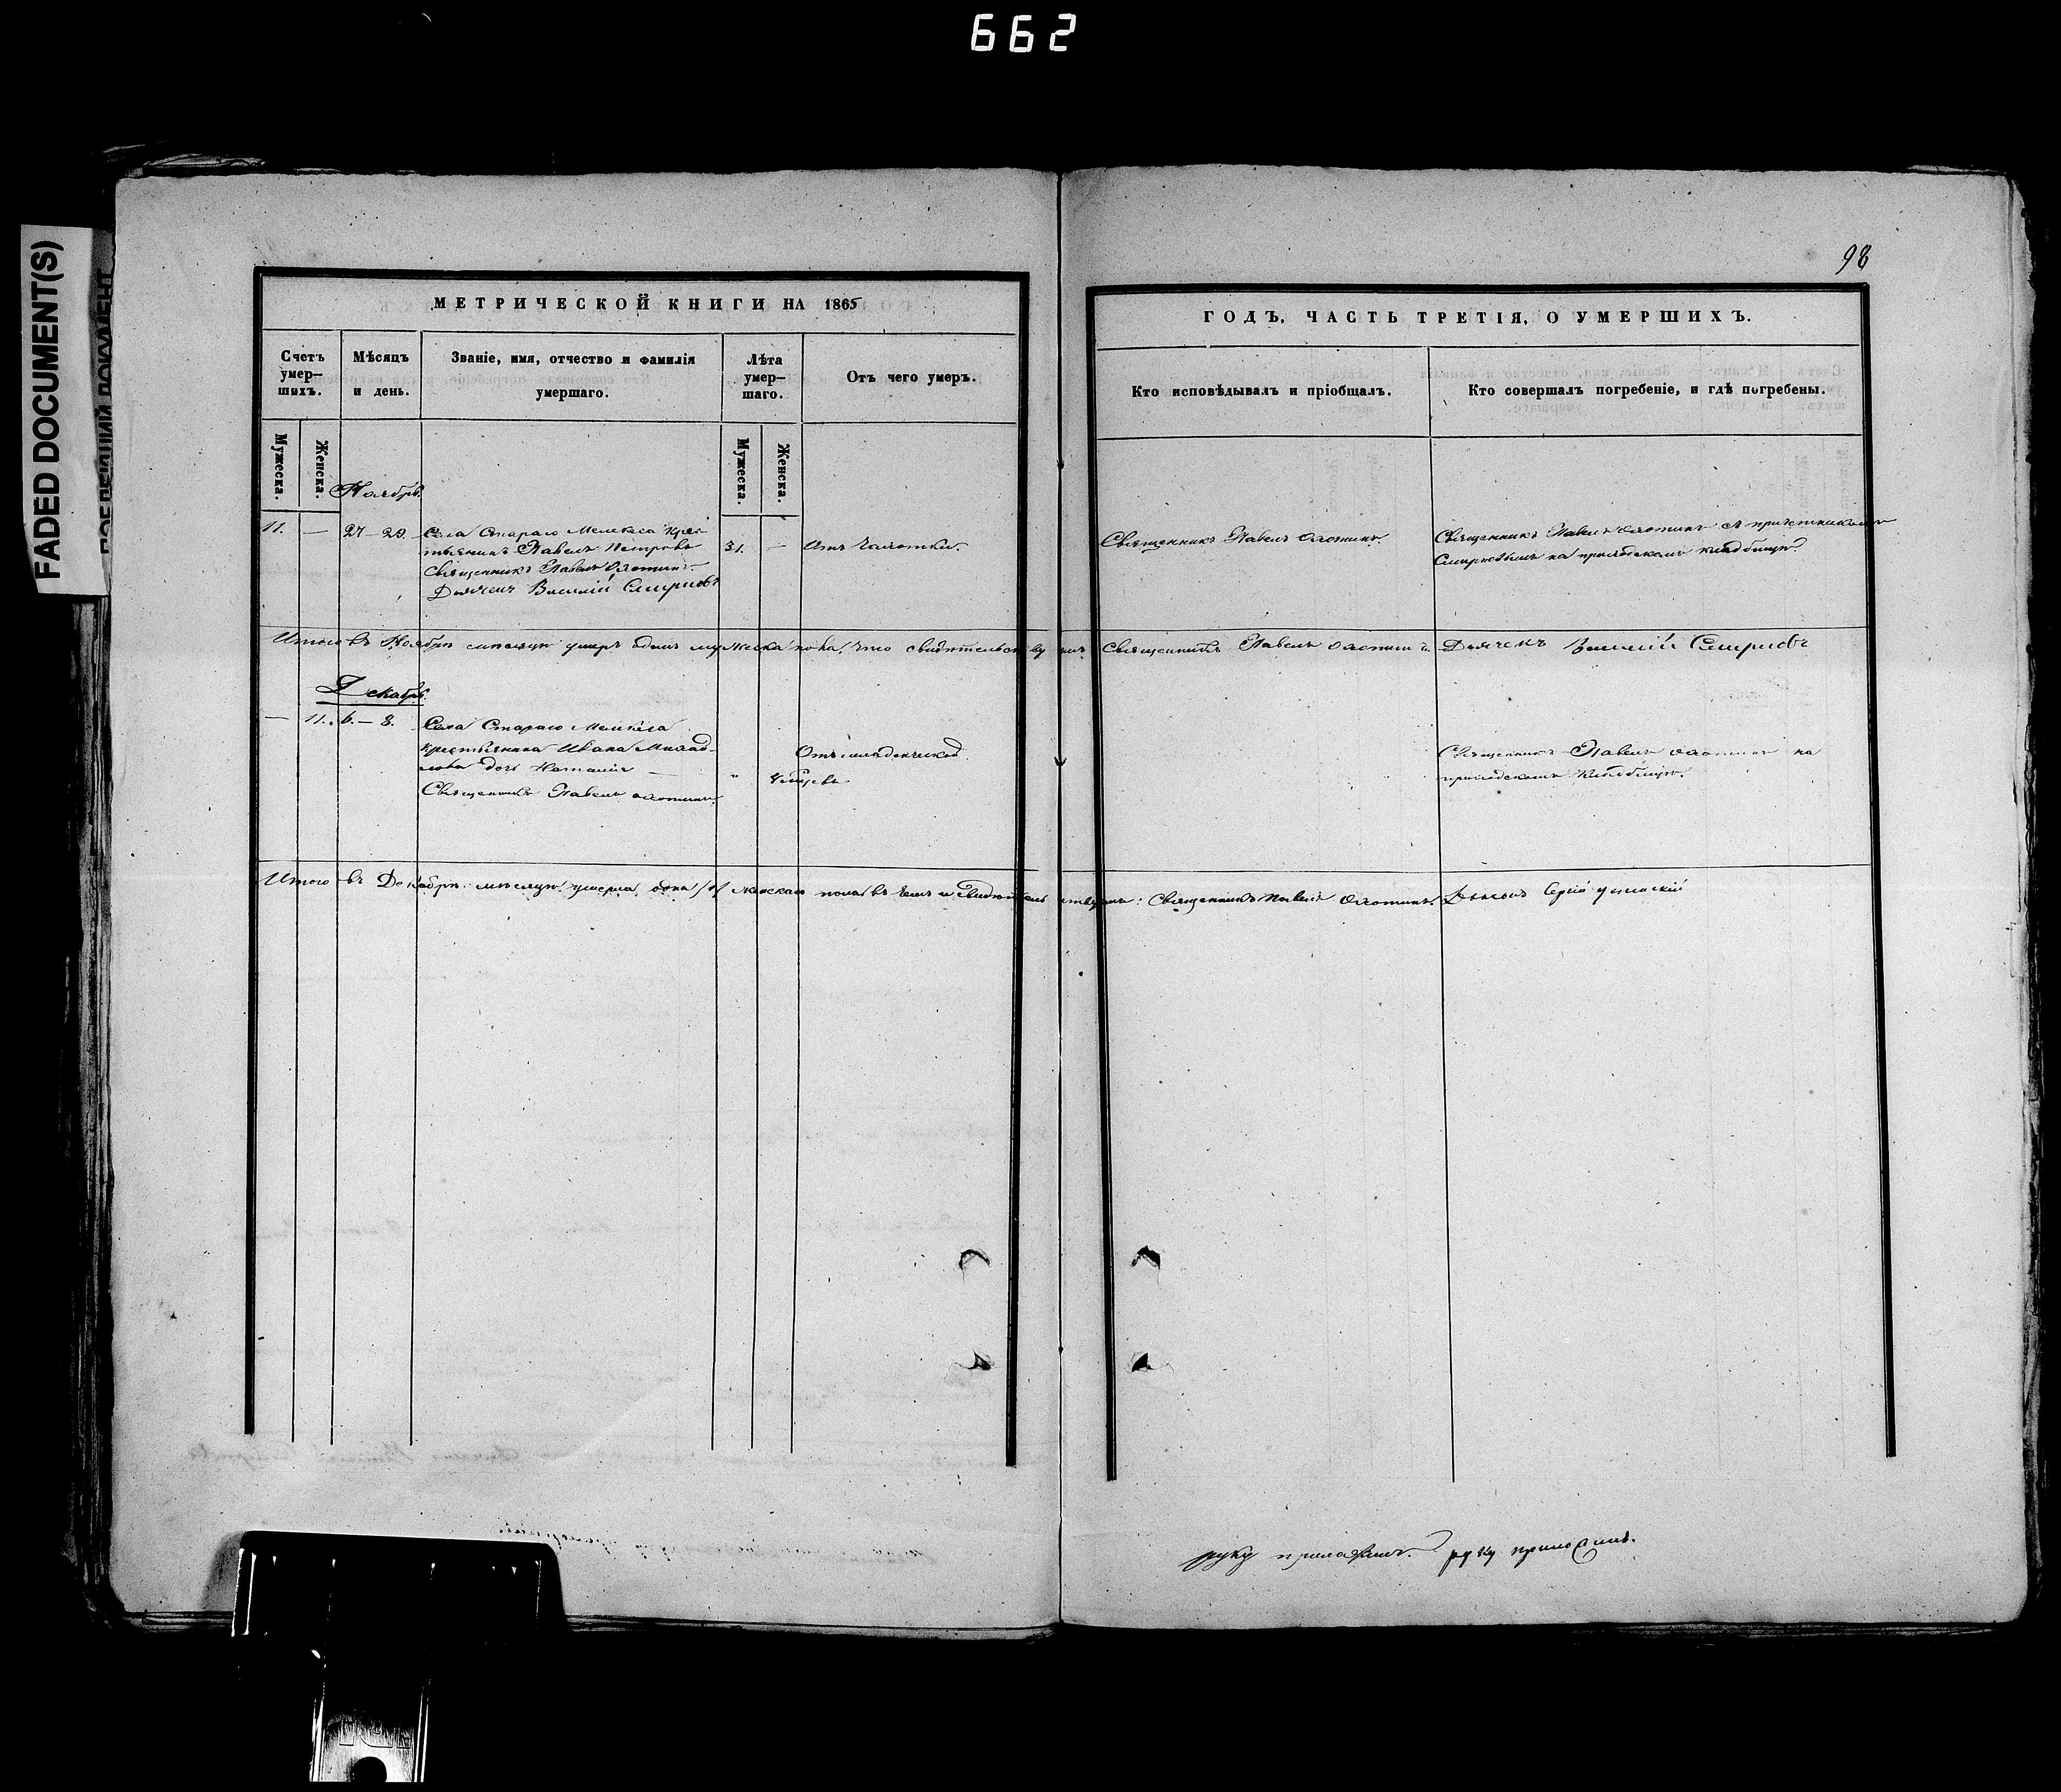 662
FADED DOCUMENT(S)
98
МЕТРИЧЕСКОЙ КНИГИ НА 1865
Счетъ умер—шихъ.
Мѣсяцъ и день.
Званіе, имя, отчество и фамилія умершаго.
Лѣта умер—шаго.
Отъ чего умеръ.
Мужеска.
Женска.
Мужеска.
Женска.
Ноябрь.
11. — 27 – 29.
Села Стараго Мелекеса крес-
тьянинъ Павелъ Петровъ
Священникъ Павелъ Охотинъ.
Дьячекъ Василій Смирновъ
31. —
Отъ чахотки.
Итого въ Ноябрѣ мѣсяцѣ умеръ одинъ мужеска пола, что свидѣтельствуемъ
Декабрь.
— 11. 6. – 8.
Села Стараго Мелекеса
крестьянина Ивана
дочь Наталія —
Священникъ Павелъ Охотинъ.
Отъ младенческой
Итого въ Декабрѣ мѣсяцѣ умерла одна /1/ женскаго пола въ чемъ и свидѣтельствуемъ: Священникъ Павелъ Охотинъ. Сергій
ГОДЪ, ЧАСТЬ ТРЕТІЯ, О УМЕРШИХЪ.
Кто исповѣдывалъ и пріобщалъ.
Кто совершалъ погребеніе, и гдѣ погребены.
Священникъ Павелъ Охотинъ.
Священникъ Павелъ Охотинъ съ причетникомъ
Смирновымъ на приходскомъ кладбищѣ.
Священникъ Павелъ Охотинъ. Дьячекъ Василій Смирновъ
Священникъ Павелъ Охотинъ на
приходскомъ кладбищѣ.
руку приложилъ. руку приложилъ.